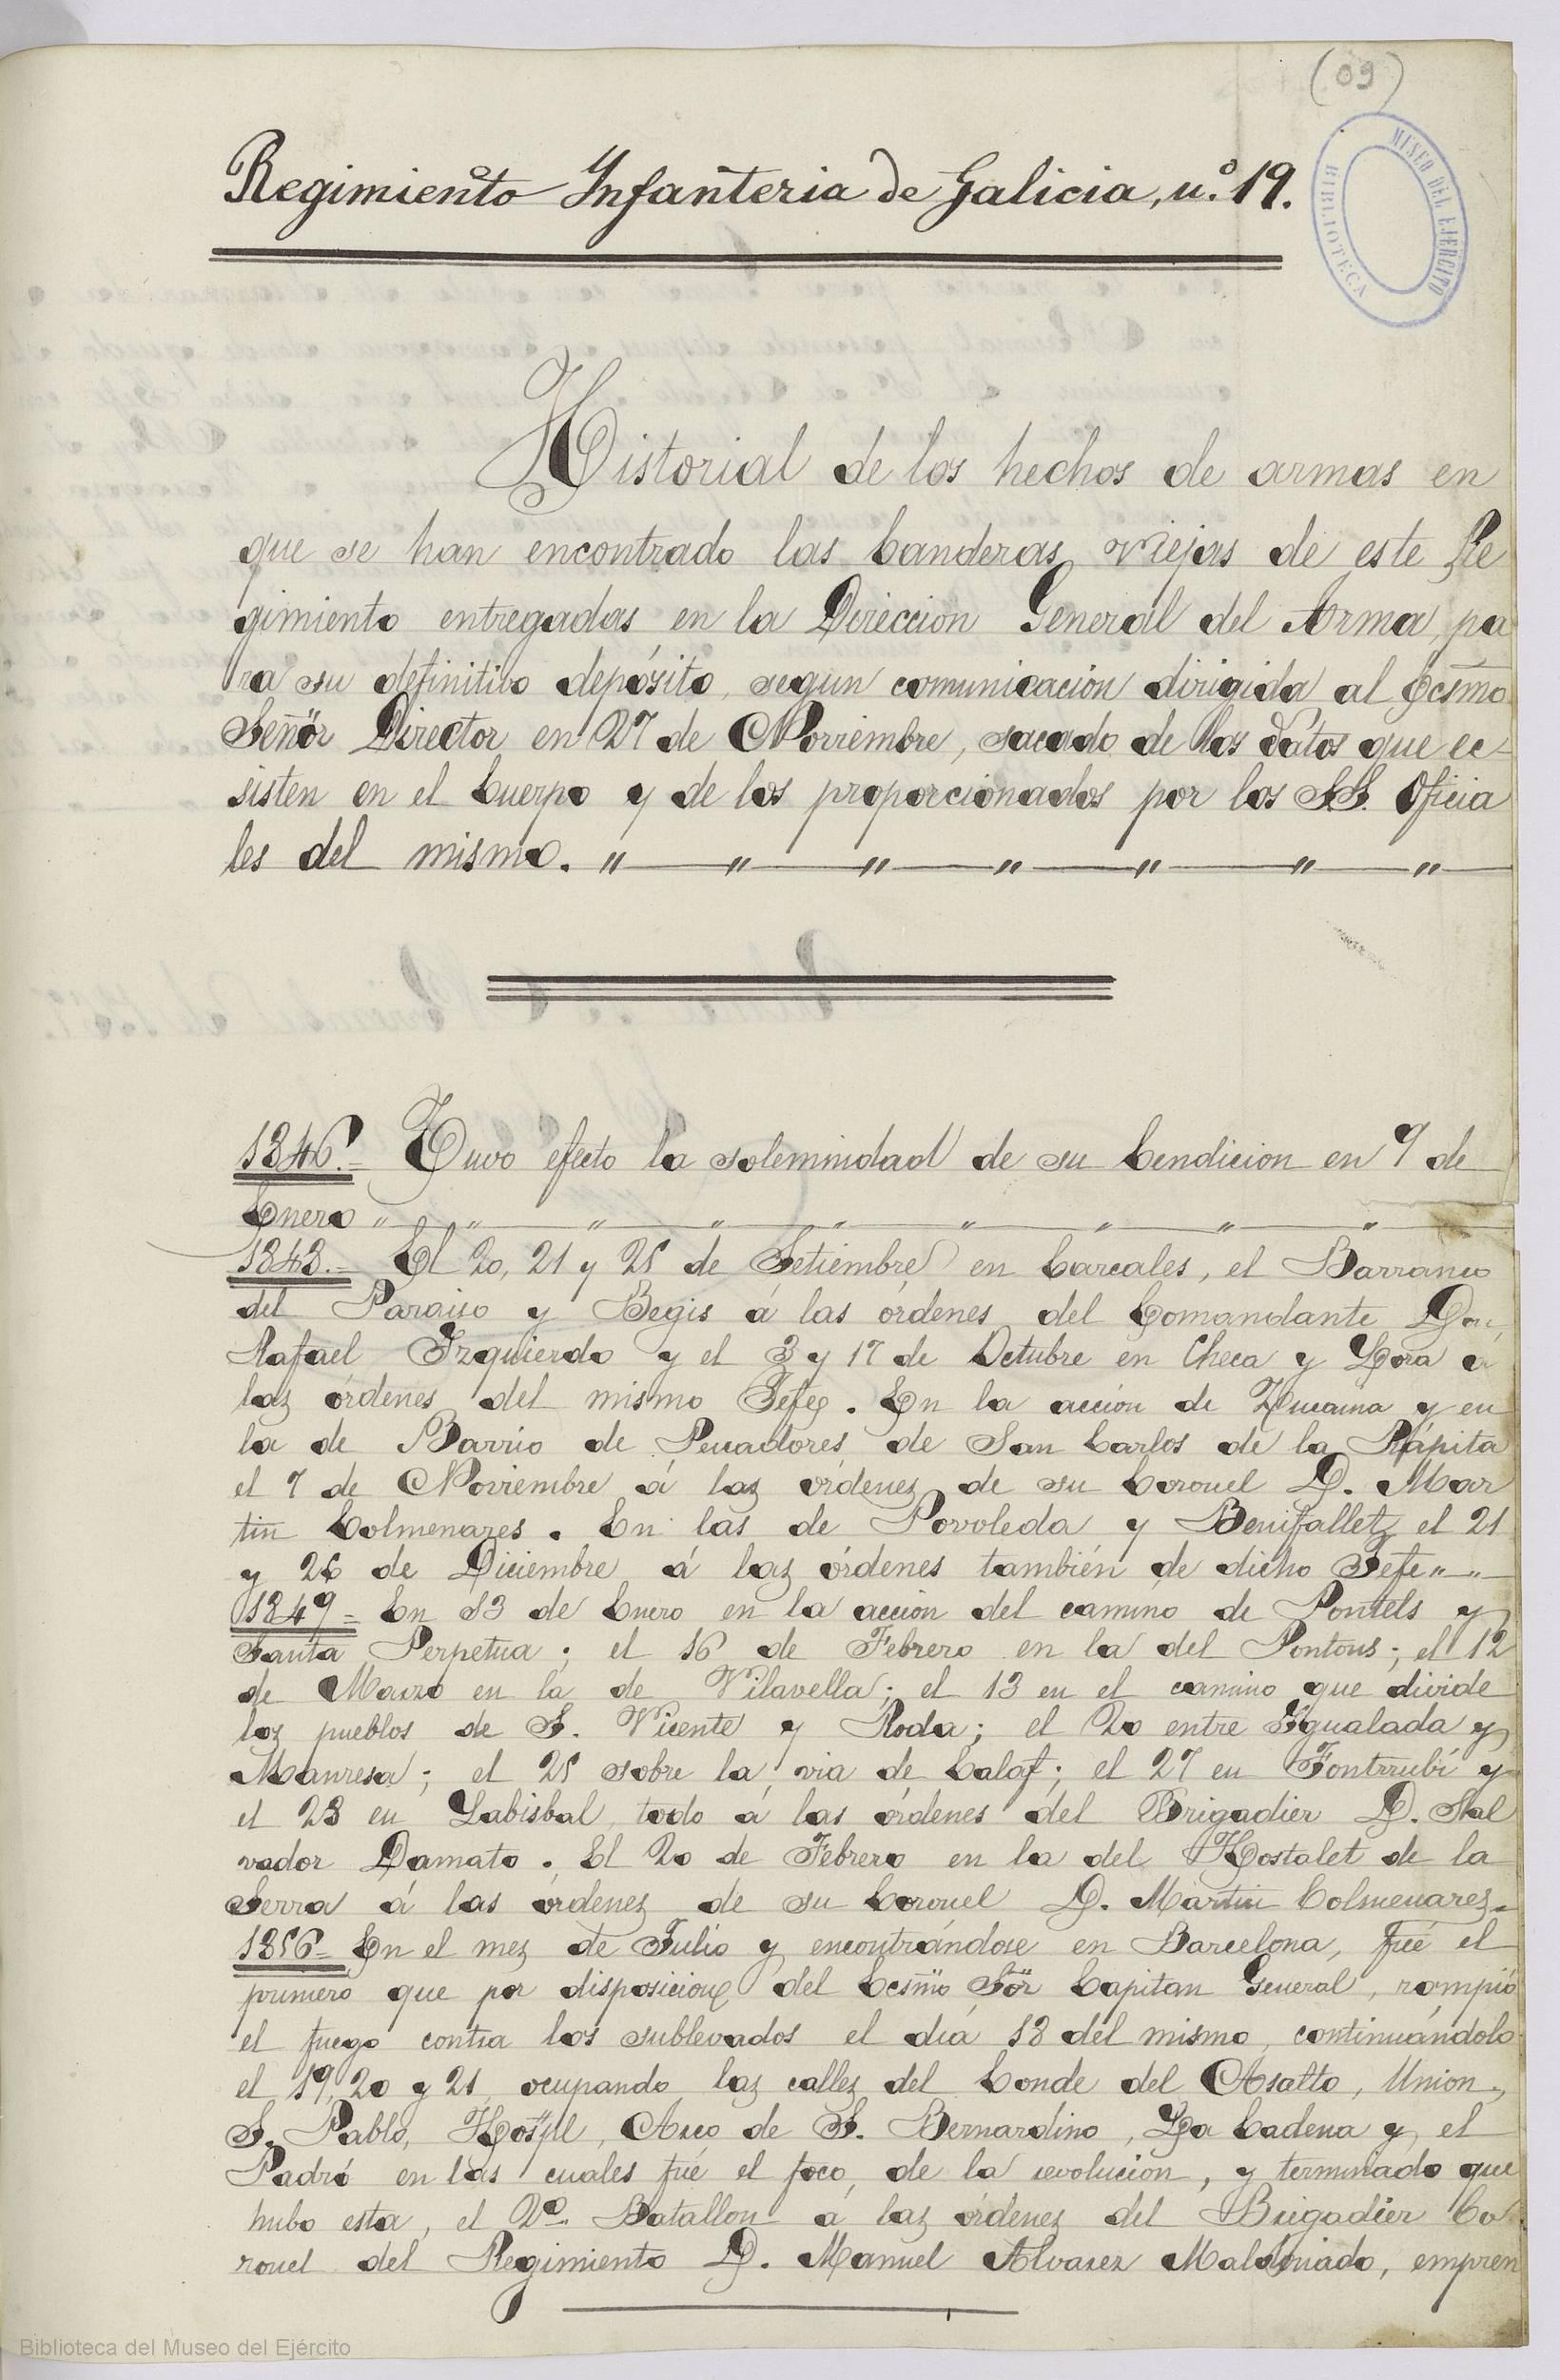 (09)
MUSEO DEL EJERCITO
BIBLIOTECA
Regimiento Infanteria de Galicia, n.º 19.
Historial de los hechos de armas en
que se han encontrado las banderas viejas de este Re
gimiento entregadas en la Direccion General del Arma, pa
ra su definitivo depósito, segun comunicación dirigida al Ecsmo
Señor Director en 27 de Noviembre, sacado de los datos que ec-
sisten en el Cuerpo y de los proporcionados por los SS. Oficia
les del mismo. " — " — " — " — " — " — "
1846.= Tuvo efecto la solemnidad de su bendicion en 9 de
Enero " — " — " — " — " — " — " — " — "
1848.= El 20, 21 y 25 de Setiembre en Carcales, el Barranco
del Paraiso y Begis á las órdenes del Comandante Don
Rafael Izquierdo y el 3 y 17 de Octubre en Checa y Lora á
las órdenes del mismo Jefe. En la acción de Zucaina y en
la de Barrio de Pescadores de San Carlos de la Rápita
el 7 de Noviembre á las órdenes de su Coronel D. Mar
tin Colmenares. En las de Povoleda y Benifallet el 21
y 26 de Diciembre á las órdenes también de dicho Jefe " — " —
1849= En 13 de Enero en la acción del camino de Pontels y
Santa Perpetua; el 16 de Febrero en la del Pontons; el 12
de Marzo en la de Vilavella; el 13 en el camino que divide
los pueblos de S. Vicente y Roda; el 20 entre Igualada y
Manresa; el 25 sobre la via de Calaf; el 27 en Fontrrubí y
el 28 en Labisbal, todo á las órdenes del Brigadier D. Sal
vador Damato. El 20 de Febrero en la del Hostalet de la
Serra á las órdenes de su Coronel D. Martin Colmenares.
1856= En el mes de Julio y encontrándose en Barcelona, fué el
primero que por disposicion del Ecsmo Sor Capitan General, rompió
el fuego contra los sublevados el dia 18 del mismo, continuándolo
el 19, 20 y 21 ocupando las calles del Conde del Asalto, Union,
S. Pablo, Hospl, Arco de S. Bernardino, La Cadena y el
Padró en las cuales fué el foco de la revolucion, y terminado que
hubo esta, el 2º Batallon á las órdenes del Brigadier Co
ronel del Regimiento D. Manuel Alvarez Maldonado, empren
Biblioteca del Museo del Ejército